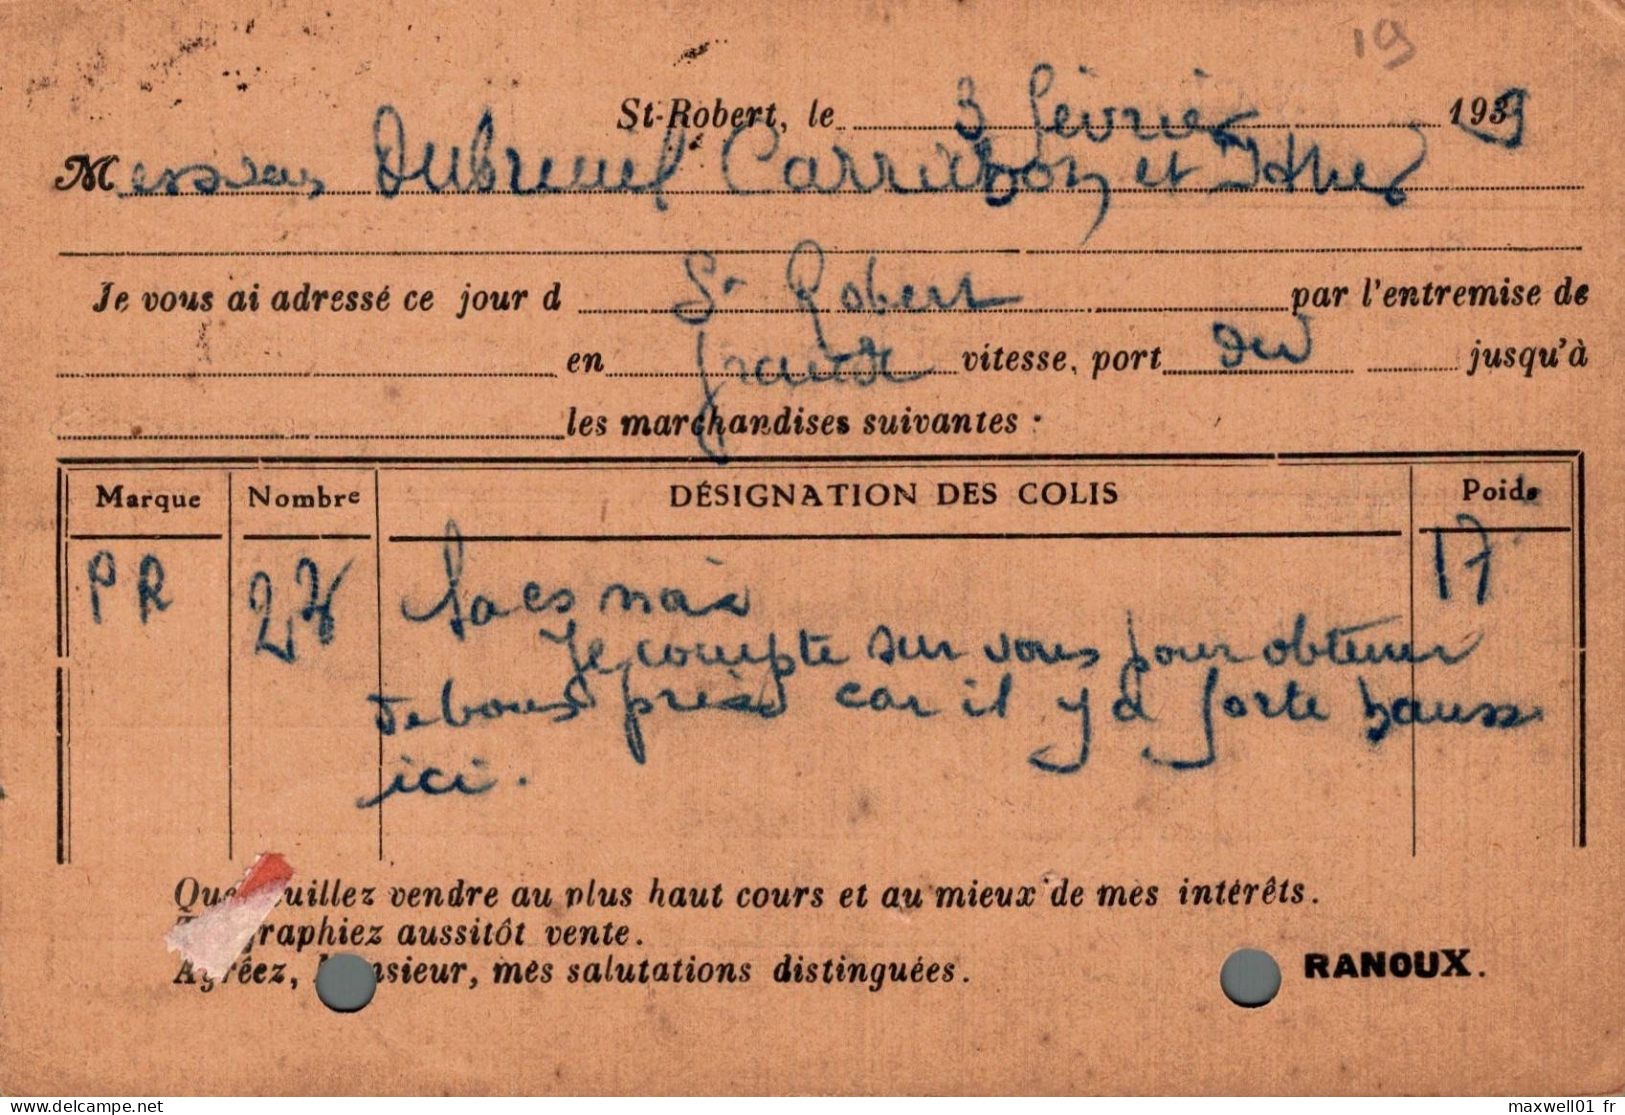 19
St-Robert, le 3 février 1939
Messieurs Dubreuil Carrubon et
Je vous ai adressé ce jour d St Robert par l'entremise de
en grande vitesse, port du jusqu'à
les marchandises suivantes :
Marque Nombre DÉSIGNATION DES COLIS Poids
PR 28 Sacs noix 17
Je compte sur vous pour obtenir
de bons prix car il y a forte hausse
ici.
veuillez vendre au plus haut cours et au mieux de mes intérêts.
graphiez aussitôt vente.
Agréez, Monsieur, mes salutations distinguées. RANOUX.
maxwell01 fr